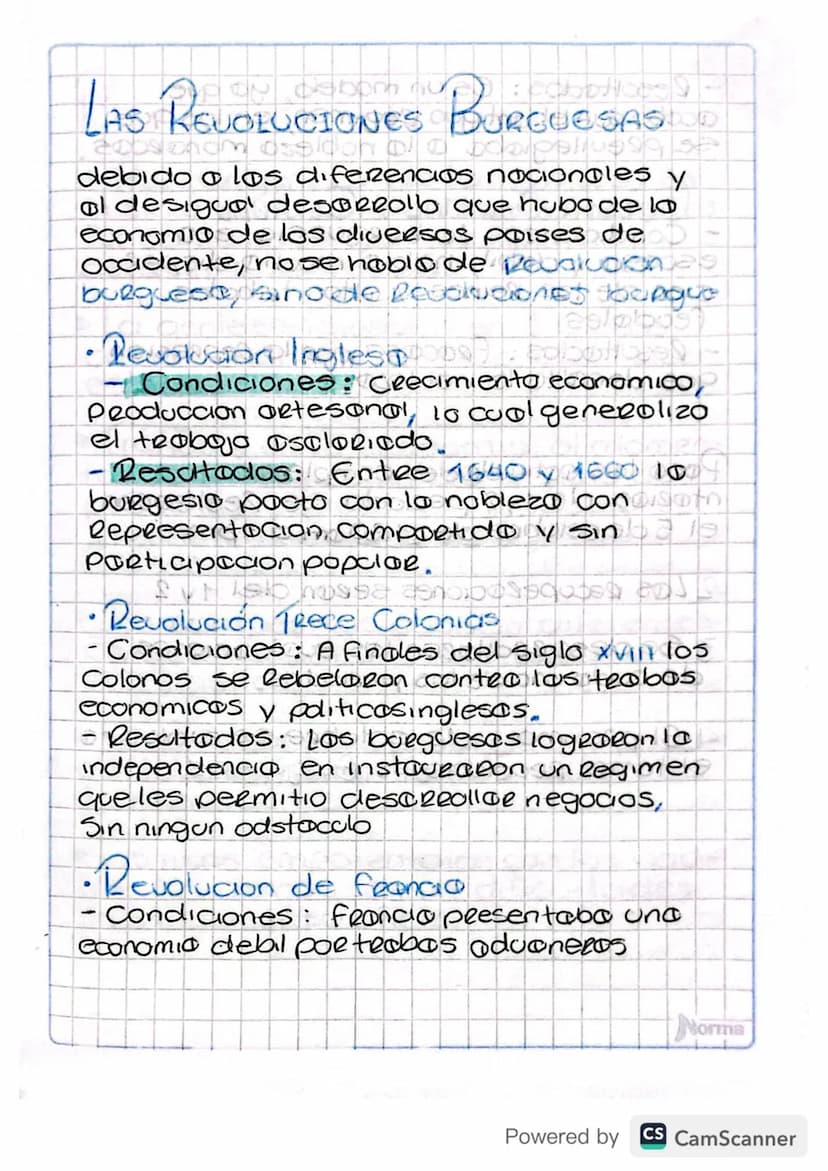 LAS REVOLUCIONES BURGUESAS
debido a las diferencias nacionales y
al desigual desarrollo que hubo de la
economia de las diversas paises de
occidente, no se habla de Revolucion
burguesa, sino de Revoluciones burgue
· Revolucion Inglesa
- Condiciones: Crecimiento economico,
Produccion artesanal, lo cual generalizo
el trabajo asalariado.
- Resultados: Entre 1640 y 1660 la
burgesia pacto con la nobleza con
Representacion, compartida y sin
Participacion popular.
· Revolución Trece Colonias
- Condiciones: A finales del siglo XVIII los
Colonos se Rebelaron contra las trabas
economicas y politicas inglesas.
- Resultados: Las burguesas lograron la
independencia en instauraron un Regimen
que les permitio desarrollar negocios,
Sin ningun odstaculo
· Revolucion de Francia
- Condiciones: Francia presentaba una
economia debil por trabas aduaneras
Norma
Powered by CS CamScanner